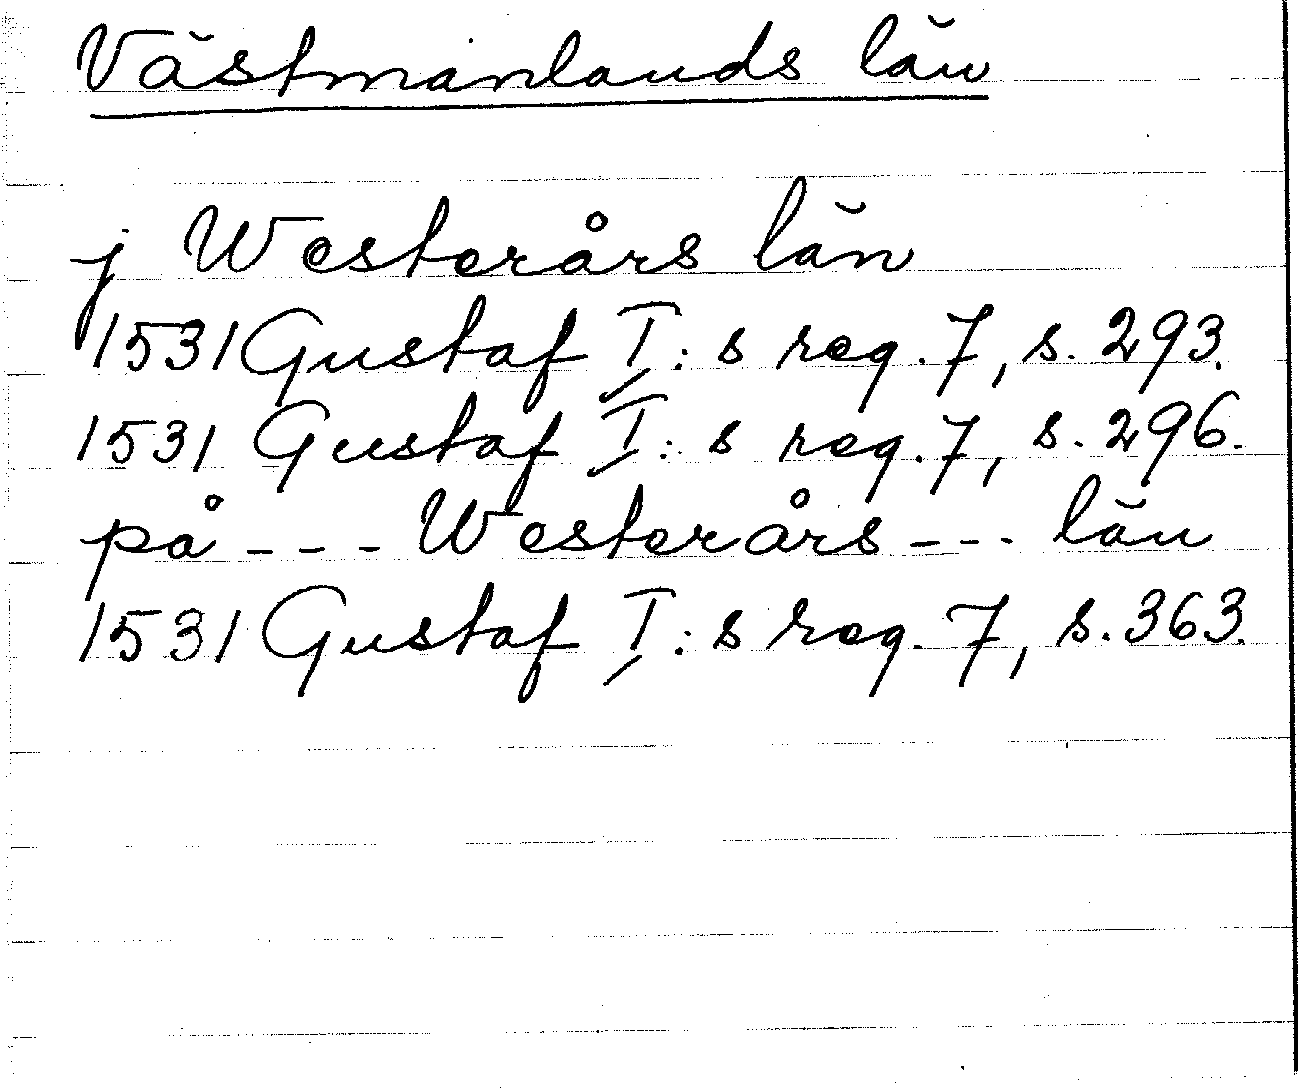 Västmanlands län
j Westerårs län
1531 Gustaf I:s reg. 7, s. 293.
1531 Gustaf I:s reg. 7, s. 296.
på - - - Westerårs - - - län
1531 Gustaf I:s reg. 7, s. 363.